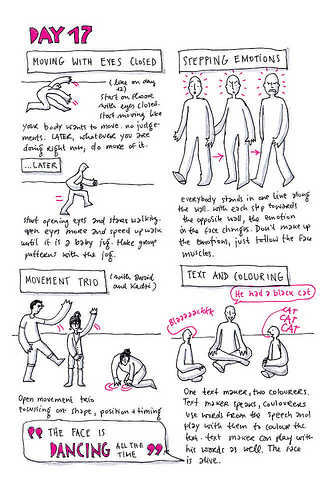 DAY 17
MOVING WITH EYES CLOSED
(like on day
12)
Start on floor
with eyes closed.
start moving like
your body wants to move. no judge-
ments. LATER, whatever you are
doing right now, do more of it.
...LATER
start opening eyes and start walking.
open eyes more and speed up walk
until it is a baby jog. Make group
patterns with the jog.
MOVEMENT TRIO
(with
and
Open movement trio
focussing on shape, position + timing
THE FACE IS
DANCING ALL THE
TIME
STEPPING EMOTIONS
Everybody stands in one line along
the wall. with each step towards
the opposite wall, the emotion
in the face changes. Don't make up
the emotions, just follow the face
muscles.
TEXT AND COLOURING
He had a black cat
Blaaaaackkk
CAT
CAT
CAT
One text maker, two colourers.
Text maker speaks, colourers
use words from the speech and
play with them to colour the
text. text maker can play with
his words as well. The face
is alive.